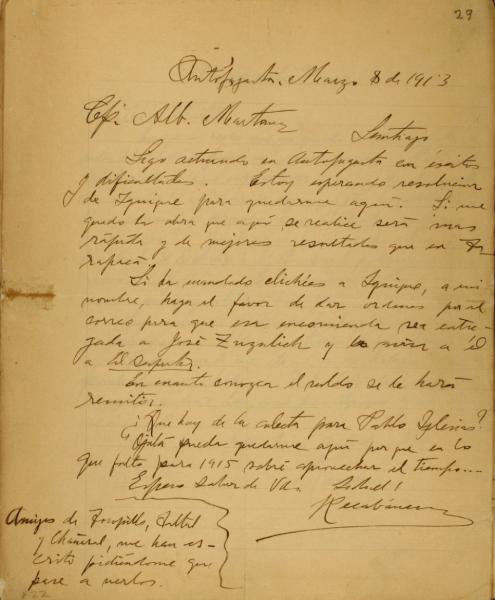 29
Antofagasta, Marzo 8 de 1913
Alb. Martinez
Santiago
Sigo actuando en Antofagasta con éxitos
y dificultades. Estoy esperando resolucion
de Iquique para quedarme aquí. Si me
quedo la obra que aquí se realice será mas
rápida y de mejores resultados que en Ta
rapacá.
Si ha mandado clichées a Iquique, a mi
nombre, haga el favor de dar ordenes por el
correo para que esa encomienda sea entre-
gada a José Zuzulich y a él
a
En cuanto conozca el saldo se le hará
remitir.
¿Que hay de la colecta para Pablo Iglesias?
Ojalá pueda quedarme aquí por que en lo
que falta para 1915 sabré aprovechar el tiempo...
Espero saber de Vd. Salud!
Recabarren
Amigos de Taltal
y Chañaral, me han es-
crito pidiéndome que
pase a verlos.